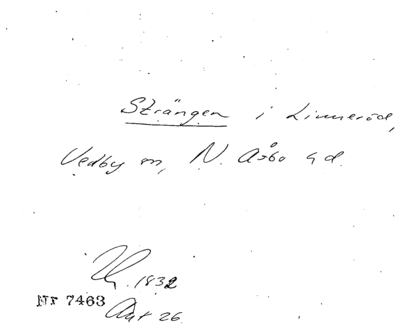 Strängen i Linneröd,
Vedby sn, N. Åsbo hd.
1832
Nr 7463
Akt 26